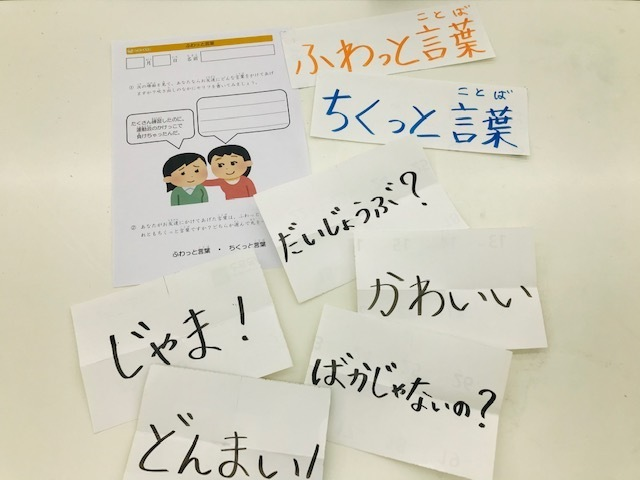 ふわっと言葉
月 日 名前
たくさん練習したのに、
運動会のかけっこで
負けちゃったんだ。
ふわっと言葉 ・ ちくっと言葉
ことば
ふわっと言葉
ことば
ちくっと言葉
だいじょうぶ?
かわいい
じゃま!
ばかじゃないの?
どんまい!